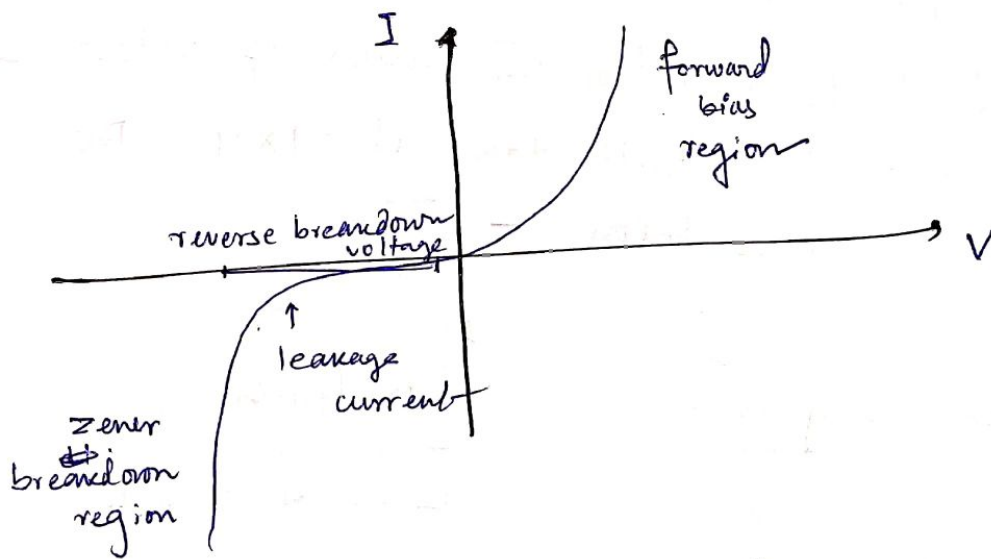 I
forward
bias
region
reverse breakdown
voltage
V
leakage
current
zener
breakdown
region